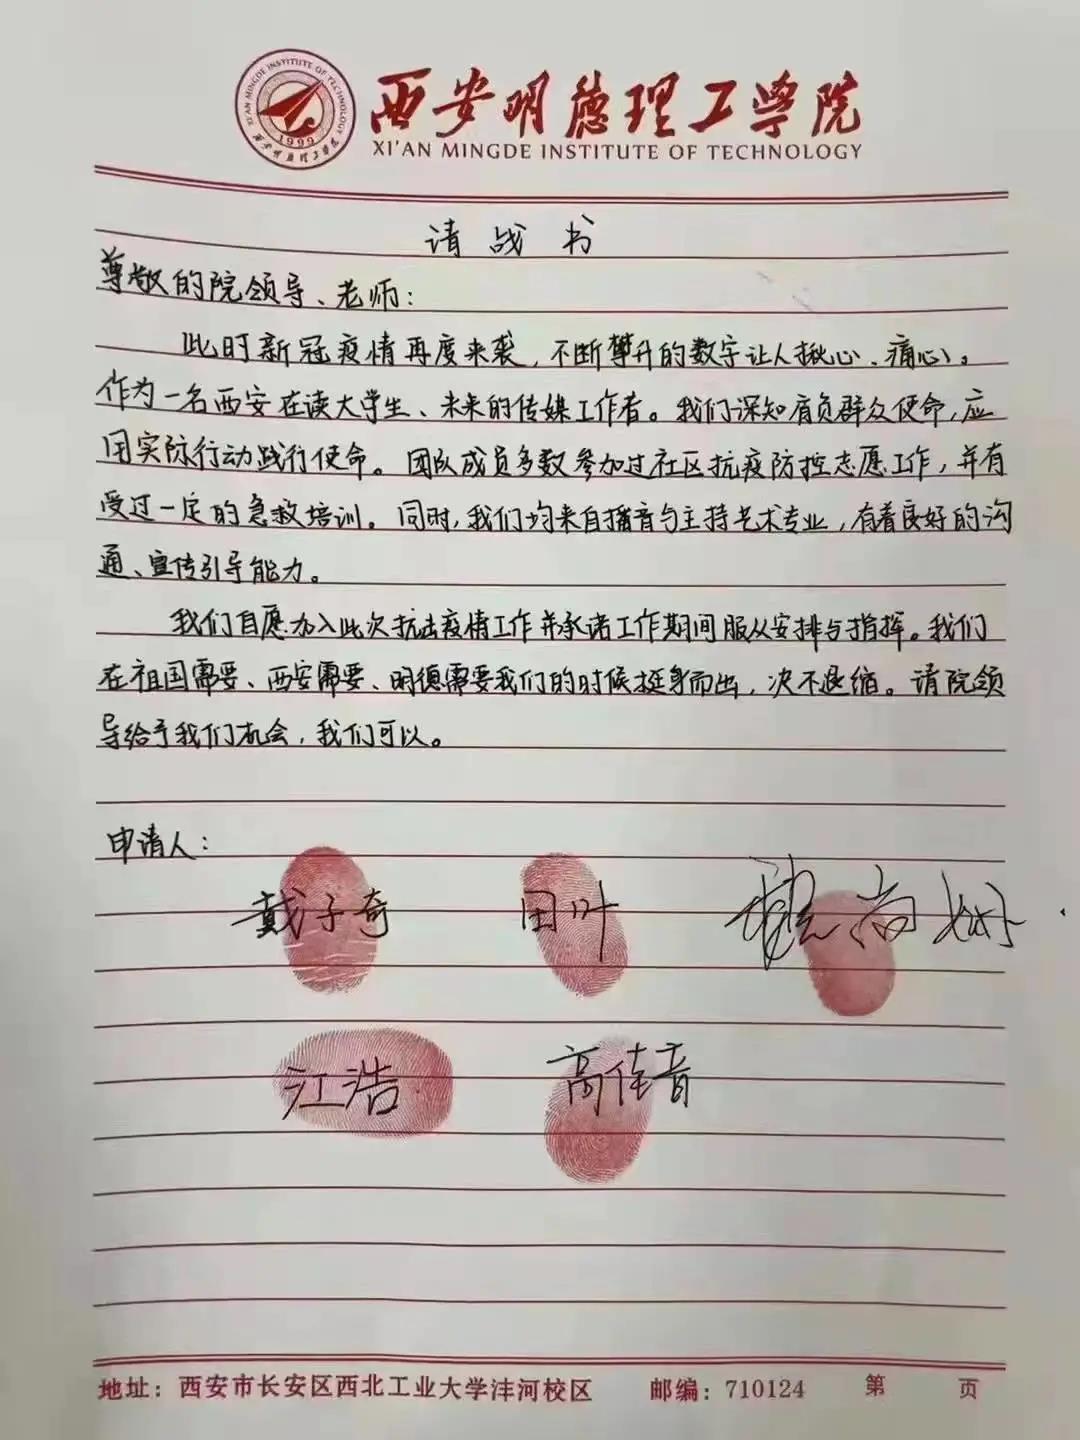 西安明德理工学院
XI'AN MINGDE INSTITUTE OF TECHNOLOGY
XI'AN MINGDE INSTITUTE OF TECHNOLOGY
1999
西安明德理工学院
请战书
尊敬的院领导、老师：
此时新冠疫情再度来袭，不断攀升的数字让人揪心、痛心。
作为一名西安在读大学生、未来的传媒工作者。我们深知肩负群众使命，应
用实际行动践行使命。团队成员多数参加过社区抗疫防控志愿工作，并有
受过一定的急救培训。同时，我们均来自播音与主持艺术专业，有着良好的沟
通、宣传引导能力。
我们自愿加入此次抗击疫情工作并承诺工作期间服从安排与指挥。我们
在祖国需要、西安需要、明德需要我们的时候挺身而出，决不退缩。请院领
导给予我们机会，我们可以。
申请人：
戴子奇 田叶 尚
江浩 高佳音
地址：西安市长安区西北工业大学沣河校区 邮编：710124 第 页